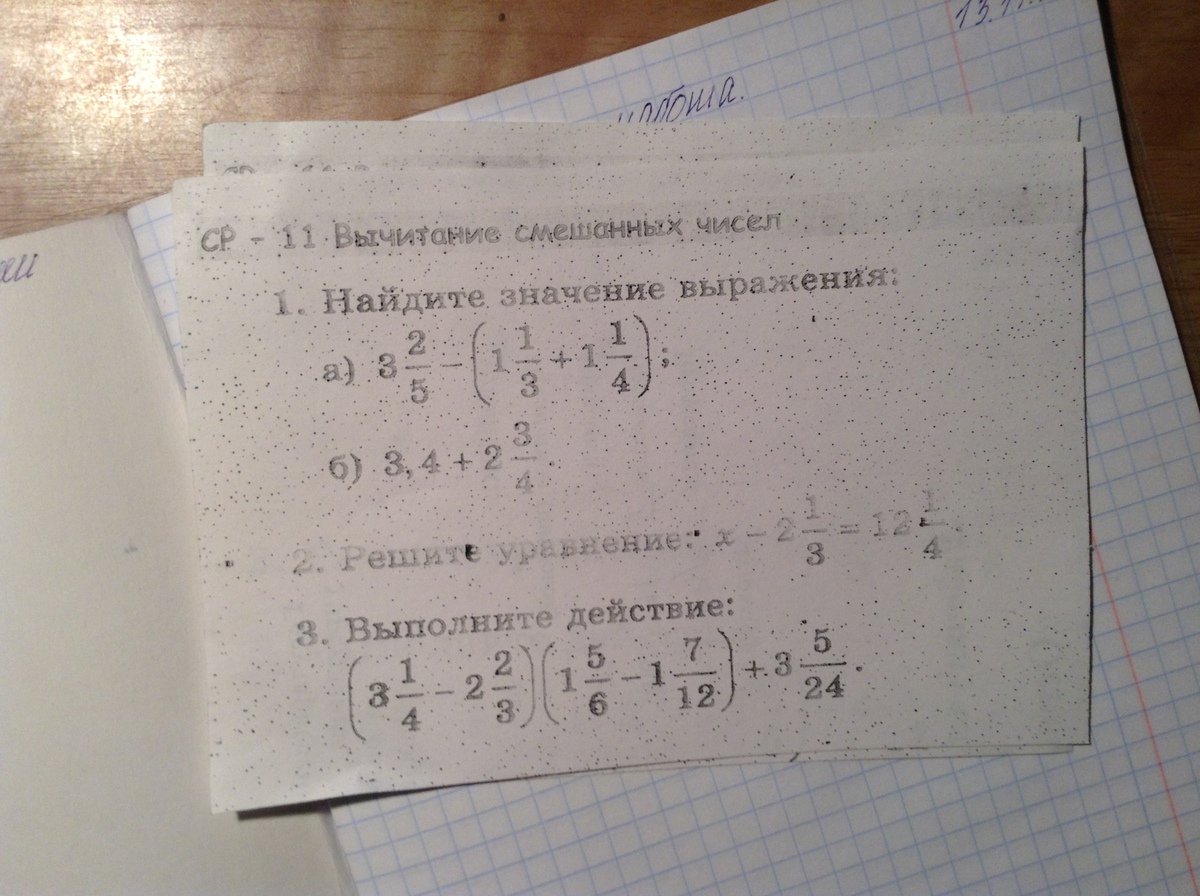 13.11.
работа.
СР - 11 Вычитание смешанных чисел
1. Найдите значение выражения:
а) 3 2/5 − (1 1/3 + 1 1/4);
б) 3,4 + 2 3/4.
2. Решите уравнение: x − 2 1/3 = 12 1/4.
3. Выполните действие:
(3 1/4 − 2 2/3)(1 5/6 − 1 7/12) + 3 5/24.